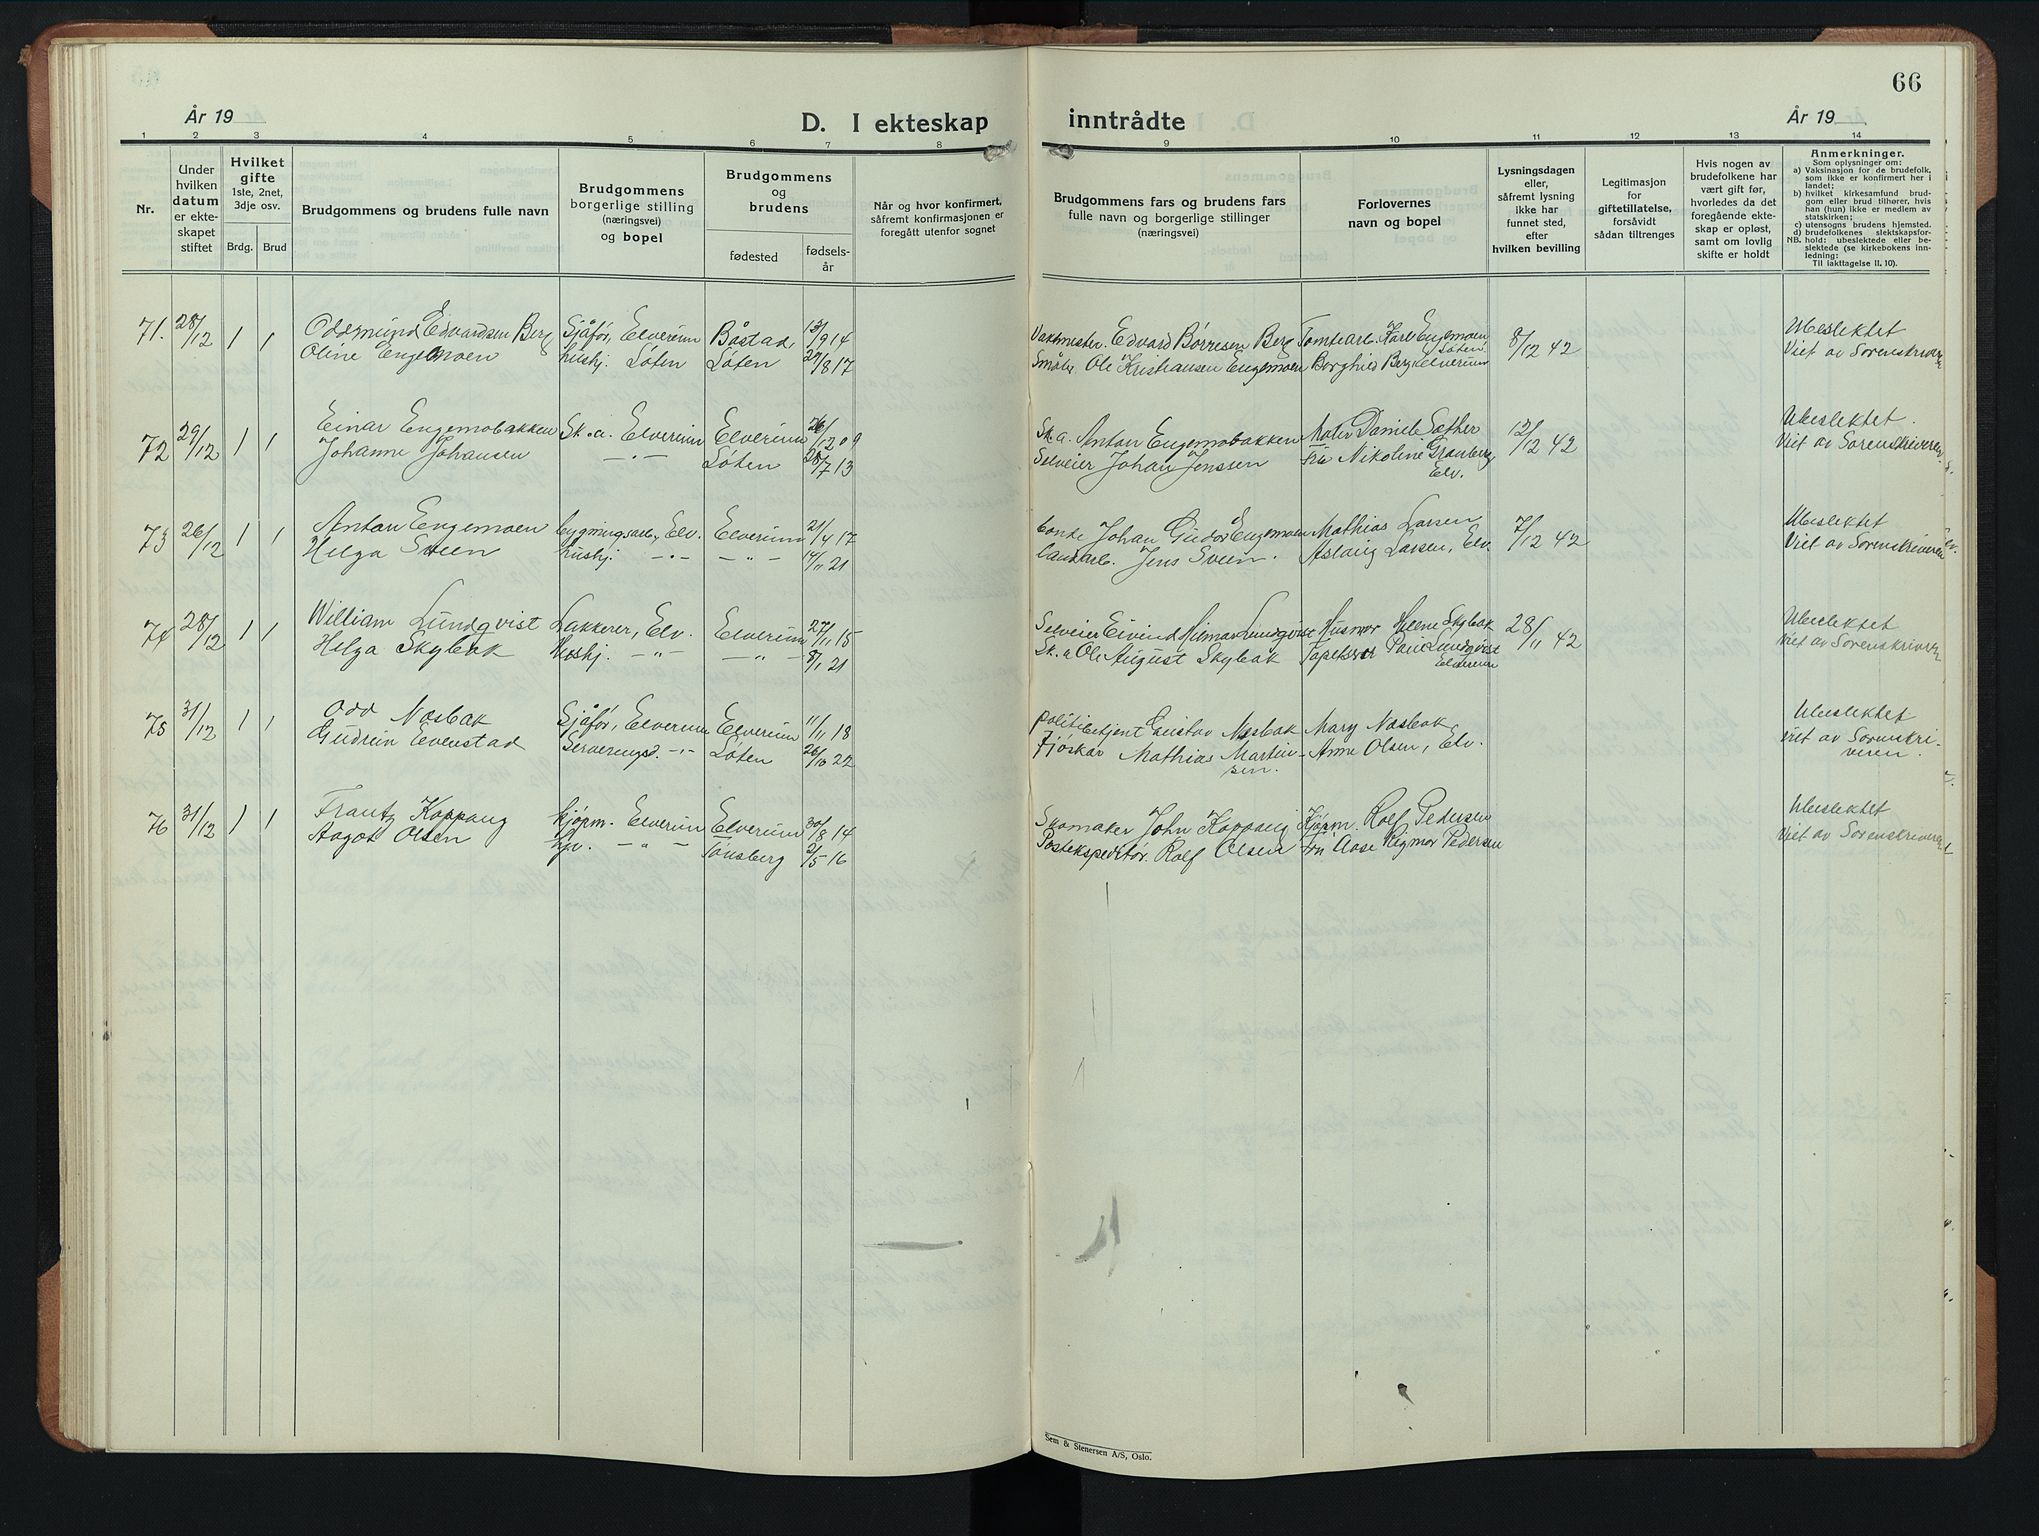 66
År 19
D. I ekteskap
inntrådte
År 19
1 2 3 4 5 6 7 8 9 10 11 12 13 14
Nr.
Under
hvilken
datum
er ekte-
skapet
stiftet
Hvilket
gifte
1ste, 2net,
3dje osv.
Brdg. Brud
Brudgommens og brudens fulle navn
Brudgommens
borgerlige stilling
(næringsvei)
og bopel
Brudgommens
og
brudens
fødested
fødsels-
år
Når og hvor konfirmert,
såfremt konfirmasjonen er
foregått utenfor sognet
Brudgommens fars og brudens fars
fulle navn og borgerlige stillinger
(næringsvei)
Forlovernes
navn og bopel
Lysningsdagen
eller,
såfremt lysning
ikke har
funnet sted,
efter
hvilken bevilling
Legitimasjon
for
giftetillatelse,
forsåvidt
sådan tiltrenges
Hvis nogen av
brudefolkene har
vært gift før,
hvorledes da det
foregående ekte-
skap er opløst,
samt om lovlig
skifte er holdt
Anmerkninger.
Som oplysninger om:
a) Vaksinasjon for de brudefolk,
som ikke er konfirmert her i
landet;
b) hvilket kirkesamfund brud-
gom eller brud tilhører, hvis
han (hun) ikke er medlem av
statskirken;
c) utensogns brudens hjemsted.
d) brudefolkenes slektskapsfor-
NB. hold: ubeslektede eller be-
slektede (se kirkebokens inn-
ledning:
Til iakttagelse II. 10).
71. 28/12 1 1 Oddmund Edvardsen Berg Sjåfør, Elverum Båstad 13/9 14 Vaktmester Edvard Børresen Berg Tomtearb. Kåre Engemoen, Løten 8/12 42 Ubeslektet
Oline Engemoen hushj. Løten Løten 27/8 17 Småbr. Ole Kristiansen Engemoen Borghild Berg Elverum Viet av Sorenskriver
72 29/12 1 1 Einar Engemobakken Sk.a. Elverum Elverum 26/12 09 Sk.a. Anton Engemobakken Maler Daniel Sæther 12/12 42 Ubeslektet.
Johanne Johansen -"- Løten 28/7 13 Selveier Johan Jenssen Fru Nikoline Granberg Elv. Viet av Sorenskriveren
73 26/12 1 1 Anton Engemoen bygningsarb., Elv. Elverum 21/4 17 bonde Johan Gudor Engemoen Mathias Larsen 7/12 42 Ubeslektet
Helga Sveen hushj. -"- -"- 14/11 21 landarb. Jens Sveen. Aslaug Larsen, Elv. Viet av Sorenskriveren
74 28/12 1 1 William Lundqvist Lakkerer, Elv. Elverum 27/11 15 Selveier Eivind Hilmar Lundqvist Husmor Helene Skybak 28/11 42 Ubeslektet
Helga Skybak Hushj. -"- -"- 8/1 21 Sk.a Ole August Skybak Tapetserer Paul Lundqvist Elverum Viet av Sorenskriver
75 31/12 1 1 Odd Næsbak Sjåfør, Elverum Elverum 11/11 18 Politibetjent Gustav Næsbak Mary Næsbak, Ubeslektet
Gudrun Evenstad Serverings. -"- Løten 26/10 22 Fjøskar Mathias Martinsen. Anne Olsen, Elv. viet av Sorenskriveren.
76 31/12 1 1 Frantz Koppang kjøpm. Elverum Elverum 30/8 14 Skomaker John Koppang Kjøpm. Rolf Pedersen Ubeslektet
Aagot Olsen -"- Tønsberg 2/5 16 Postekspeditør. Rolf Olsen Fru Aase Rigmor Pedersen Viet av Sorenskriver
Sem & Stenersen A/S, Oslo.